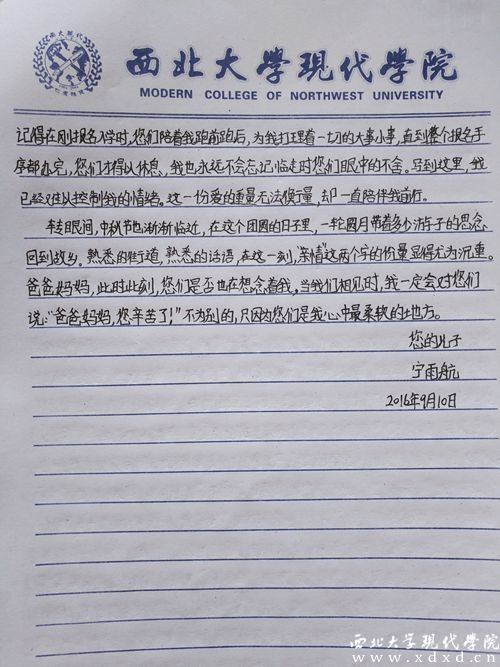 西北大学现代学院
西北大學現代學院
MODERN COLLEGE OF NORTHWEST UNIVERSITY
记得在刚报名入学时,您们陪着我跑前跑后,为我打理着一切的大事小事,直到整个报名手
序都办完,您们才得以休息、我也永远不会忘记临走时您们眼中的不舍。写到这里,我
已经难以控制我的情绪。这一份爱的重量无法衡量,却一直陪伴我前行。
转眼间,中秋节也渐渐临近,在这个团圆的日子里,一轮圆月带着多少游子的思念
回到故乡。熟悉的街道,熟悉的话语,在这一刻,“亲情”这两个字的份量显得尤为沉重。
爸爸妈妈,此时此刻,您们是否也在想念着我。当我们相见时,我一定会对您们
说:“爸爸妈妈,您辛苦了!”不为别的,只因为您们是我心中最柔软的地方。
您的儿子
宁雨航
2016年9月10日
西北大学现代学院
www.xdxd.cn